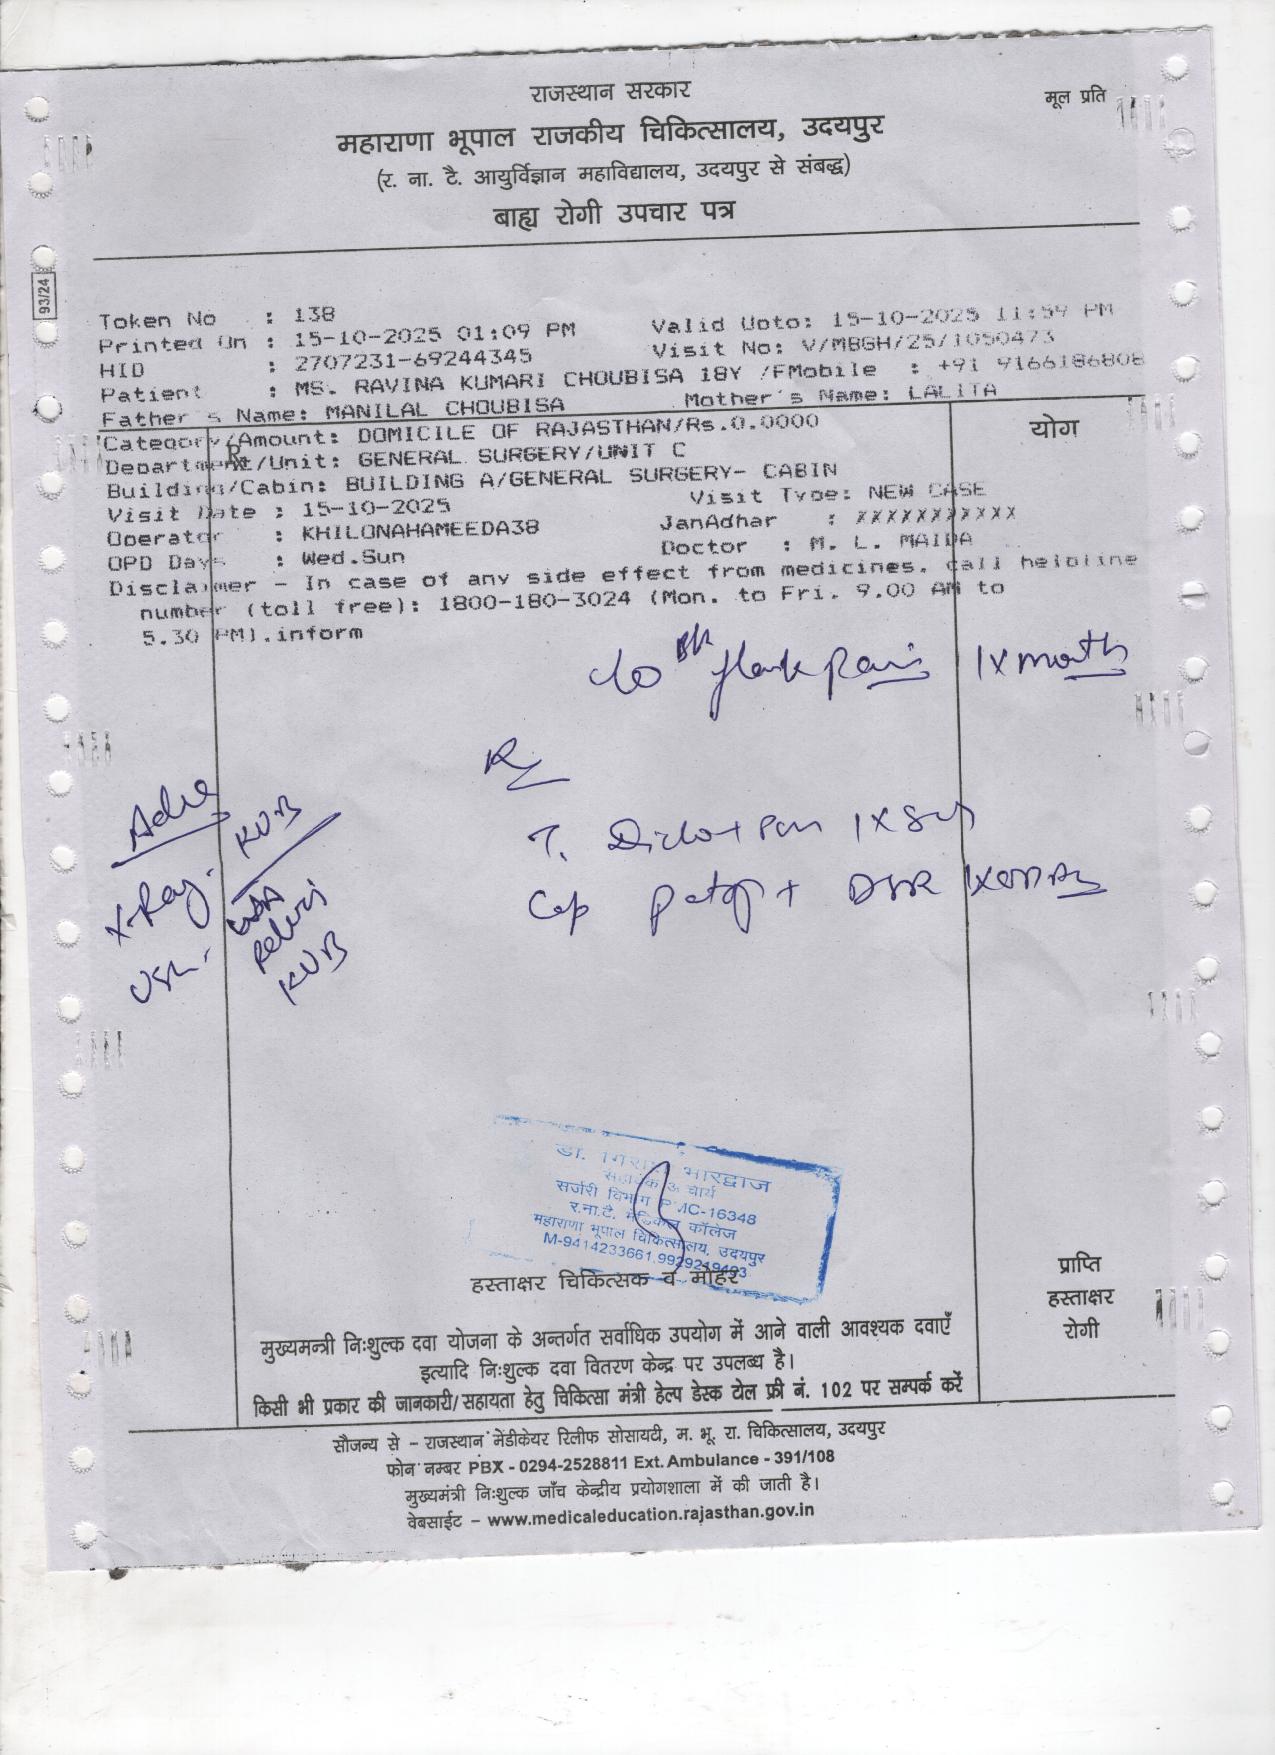 राजस्थान सरकार
मूल प्रति
महाराणा भूपाल राजकीय चिकित्सालय, उदयपुर
(र. ना. टै. आयुर्विज्ञान महाविद्यालय, उदयपुर से संबद्ध)
बाह्य रोगी उपचार पत्र
93/24
Token No : 138
Printed On : 15-10-2025 01:09 PM Valid Upto: 15-10-2025 11:59 PM
HID : 2707231-69244345 Visit No: V/MBGH/25/1050473
Patient : MS. RAVINA KUMARI CHOUBISA 18Y /F Mobile : +91 9166186808
Father's Name: MANILAL CHOUBISA Mother's Name: LALITA
योग
Category/Amount: DOMICILE OF RAJASTHAN/Rs.0.0000
Department/Unit: GENERAL SURGERY/UNIT C
Building/Cabin: BUILDING A/GENERAL SURGERY- CABIN
Visit Date : 15-10-2025 Visit Type: NEW CASE
Operator : KHILONAHAMEEDA38 JanAdhar : XXXXXXXXXXX
OPD Days : Wed.Sun Doctor : M. L. MAIDA
Disclaimer - In case of any side effect from medicines. call helpline
number (toll free): 1800-180-3024 (Mon. to Fri. 9.00 AM to
5.30 PM).inform
c/o B/L flank pain 1 x month
Rx
T. Diclo + PCM
Cap DSR
X-Ray. KUB
KUB
डा. भारद्वाज
सहायक आचार्य
सर्जरी विभाग RMC-16348
र.ना.टै. मेडिकल कॉलेज
महाराणा भूपाल चिकित्सालय, उदयपुर
M-9414233661,
हस्ताक्षर चिकित्सक व मोहर
प्राप्ति
हस्ताक्षर
रोगी
मुख्यमन्त्री निःशुल्क दवा योजना के अन्तर्गत सर्वाधिक उपयोग में आने वाली आवश्यक दवाएँ
इत्यादि निःशुल्क दवा वितरण केन्द्र पर उपलब्ध है।
किसी भी प्रकार की जानकारी/सहायता हेतु चिकित्सा मंत्री हेल्प डेस्क टोल फ्री नं. 102 पर सम्पर्क करें
सौजन्य से – राजस्थान मेडीकेयर रिलीफ सोसायटी, म. भू. रा. चिकित्सालय, उदयपुर
फोन नम्बर PBX - 0294-2528811 Ext. Ambulance - 391/108
मुख्यमंत्री निःशुल्क जाँच केन्द्रीय प्रयोगशाला में की जाती है।
वेबसाईट – www.medicaleducation.rajasthan.gov.in